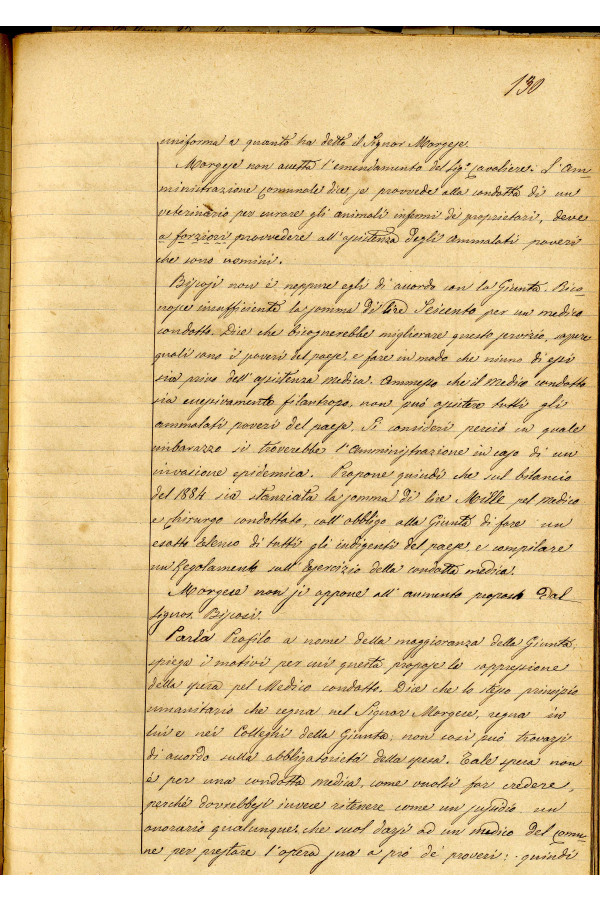 130
uniforma a quanto ha detto il Signor Morgese.
Morgese non accetta l'emendamento del Sig.r Cavaliere: L'Am=
ministrazione Comunale dice, se provvede alla condotta di un
veterinario per curare gli animali infermi de' proprietari, deve
a forziori provvedere all'assistenza degli ammalati poveri
che sono uomini.
Bissosi non è neppure egli di accordo con la Giunta. Rico
nosce insufficiente la somma di lire Seicento per un medico
condotto. Dice che bisognerebbe migliorare questo servizio, sapere
quali sono i poveri del paese, e fare in modo che niuno di essi
sia privo dell'assistenza medica. Ammesso che il Medico condotto
sia eccessivamente filantropo, non può assistere tutti gli
ammalati poveri del paese. Si consideri perciò in quale
imbarazzo si troverebbe l'Amministrazione in caso di un
invasione epidemica. Propone quindi che sul bilancio
del 1884 sia stanziata la somma di lire Mille pel Medico
e chirurgo condottato, coll'obbligo alla Giunta di fare un
esatto elenco di tutti gli indigenti del paese, e compilare
un Regolamento sull'Esercizio della condotta medica.
Morgese non si oppone all'aumento proposto dal
Signor
Parla Profilo a nome della maggioranza della Giunta,
spiega i motivi per cui questa propose la soppressione
della spesa pel Medico condotto. Dice che lo stesso principio
umanitario che regna nel Signor Morgese, regna in
lui e nei Colleghi della Giunta, non così può trovarsi
di accordo sulla obbligatorietà della spesa. Tale spesa non
è per una condotta medica, come vuolsi far credere,
perchè dovrebbesi invece ritenere come un sussidio un
onorario qualunque, che suol darsi ad un medico del Comu=
ne per prestare l'opera sua a prò de' poveri: quindi